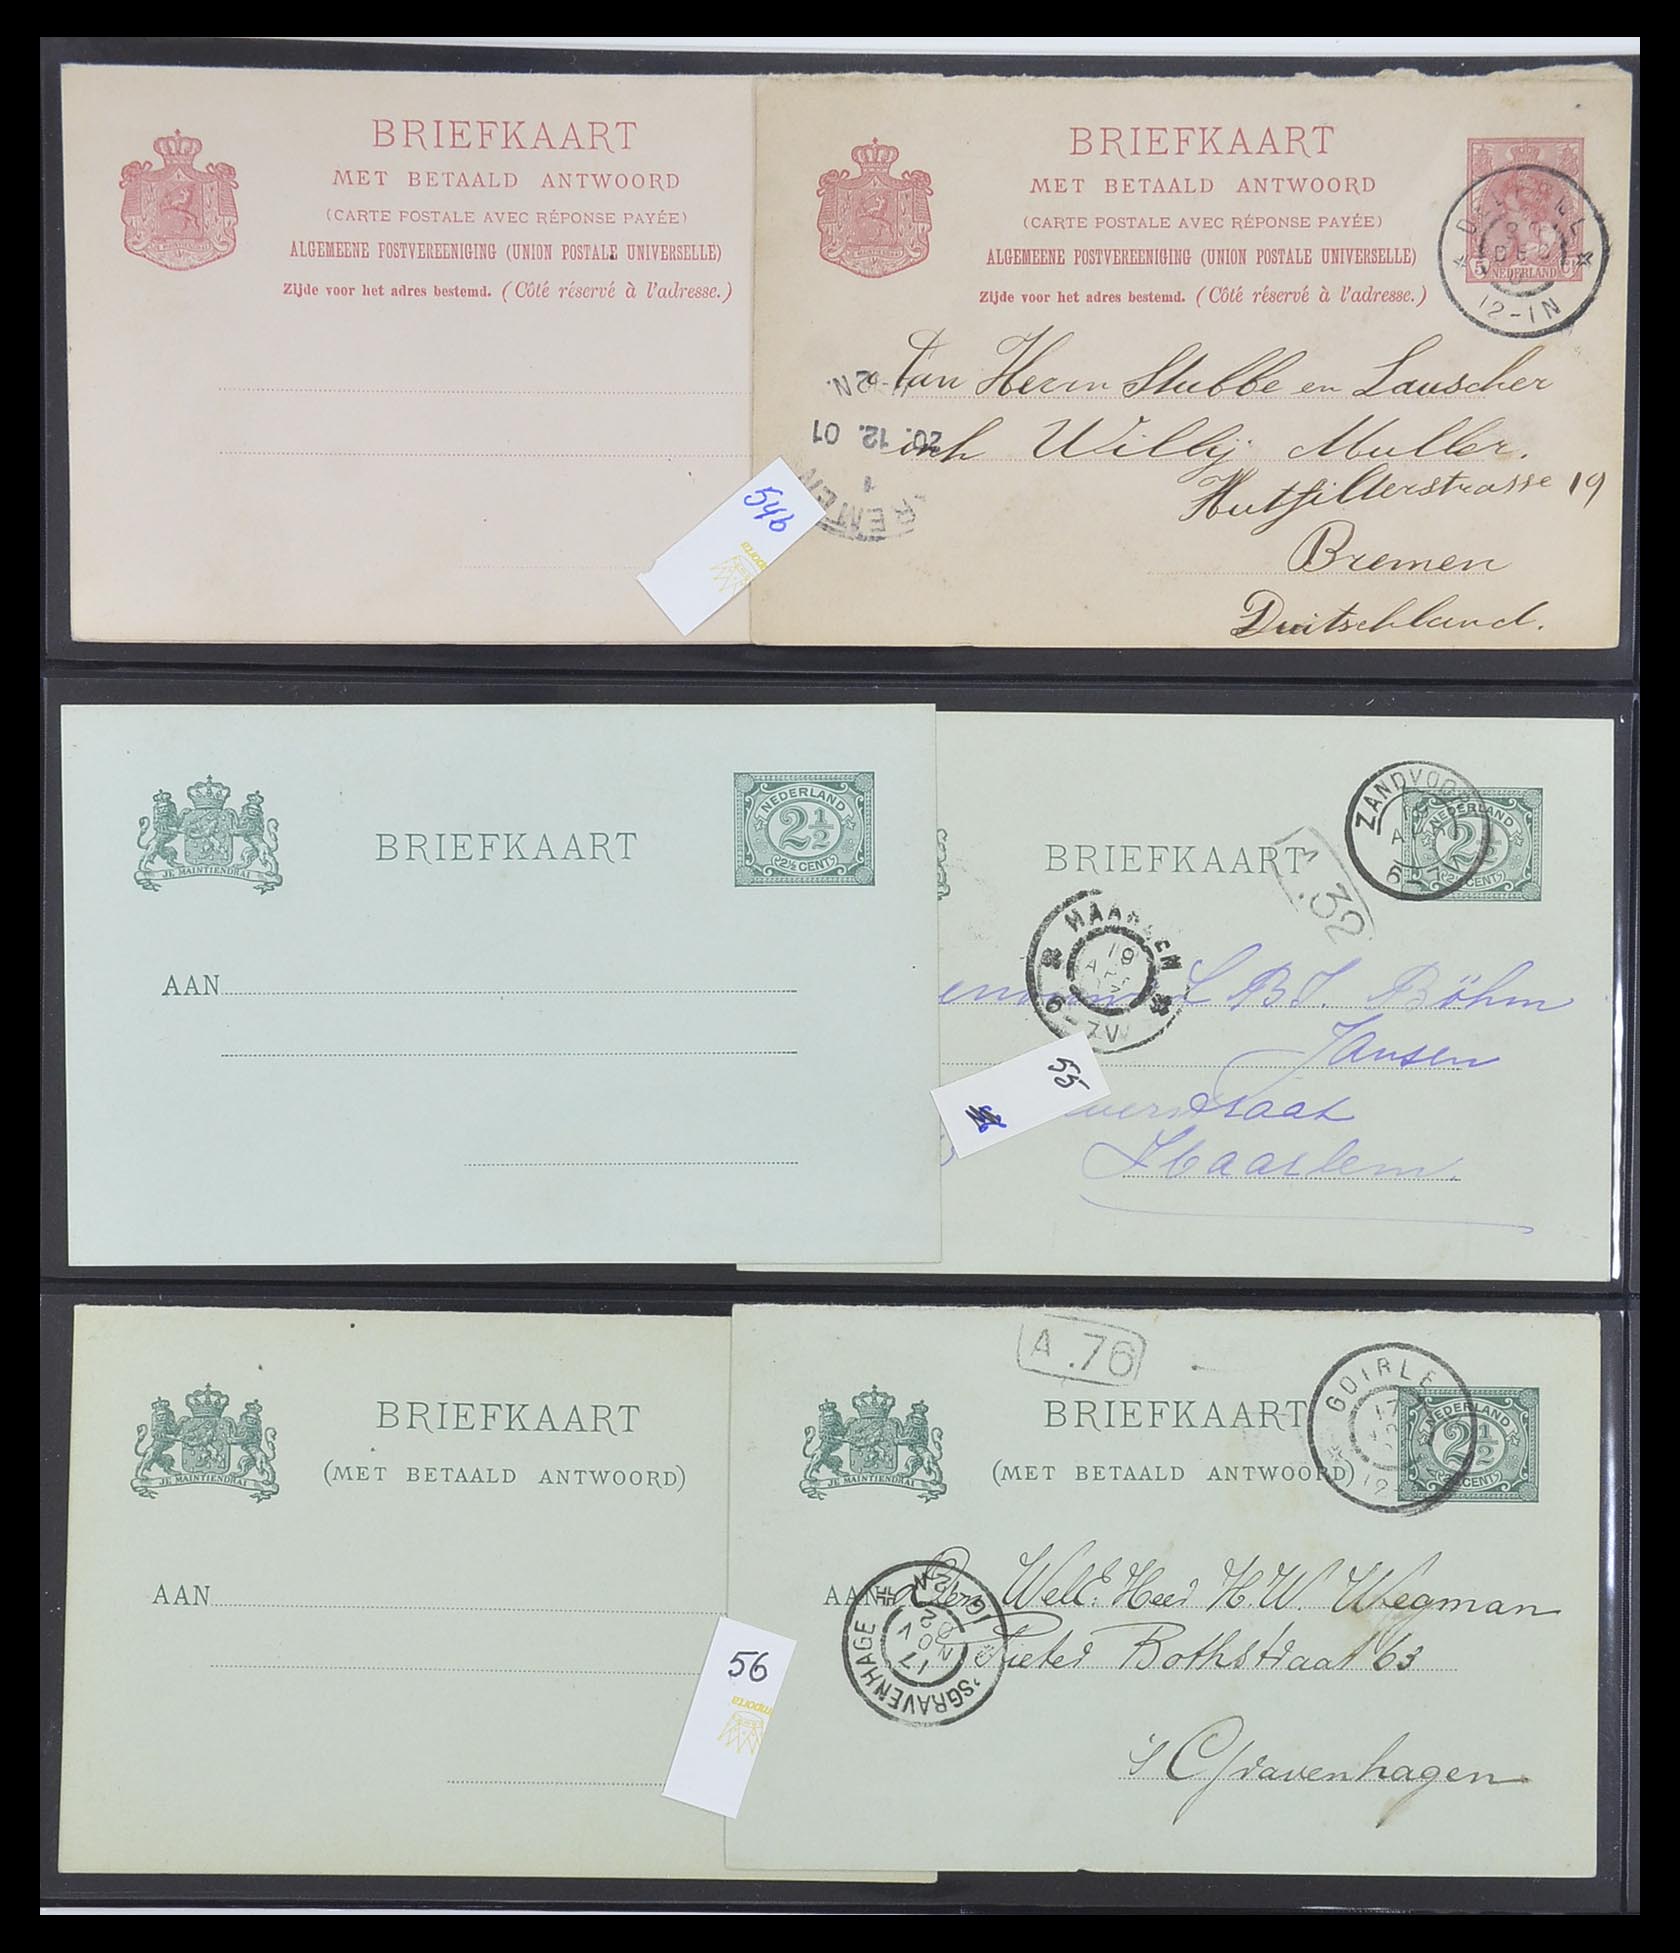 BRIEFKAART
MET BETAALD ANTWOORD
(CARTE POSTALE AVEC RÉPONSE PAYÉE)
ALGEMEENE POSTVEREENIGING (UNION POSTALE UNIVERSELLE)
Zijde voor het adres bestemd. (Côté réservé à l'adresse.)
JE MAINTIENDRAI
54b
importa
BRIEFKAART
MET BETAALD ANTWOORD
(CARTE POSTALE AVEC RÉPONSE PAYÉE)
ALGEMEENE POSTVEREENIGING (UNION POSTALE UNIVERSELLE)
Zijde voor het adres bestemd. (Côté réservé à l'adresse.)
5 Ct
NEDERLAND
DEC
12-1N
Aan Herrn Stubbe en Lauscher
Willij Muller.
Hutfilterstrasse 19
Bremen
Duitschland.
20.12.01
1
BRIEFKAART
JE MAINTIENDRAI
NEDERLAND
2½
2½ CENT
AAN
BRIEFKAART
NEDERLAND
2½
CENT
ZANDVOORT
6-7
A.32
HAARLEM
19
L B J. Böhm
Jansen
straat
Haarlem.
55
BRIEFKAART
(MET BETAALD ANTWOORD)
JE MAINTIENDRAI
AAN
56
importa
A.76
BRIEFKAART
(MET BETAALD ANTWOORD)
JE MAINTIENDRAI
NEDERLAND
2½
CENT
GOIRLE
17
12-
AAN den WelE. Heer H.W. Wegman
Pieter Bothstraat 63
's Gravenhagen
'SGRAVENHAGE
17
NOV
02